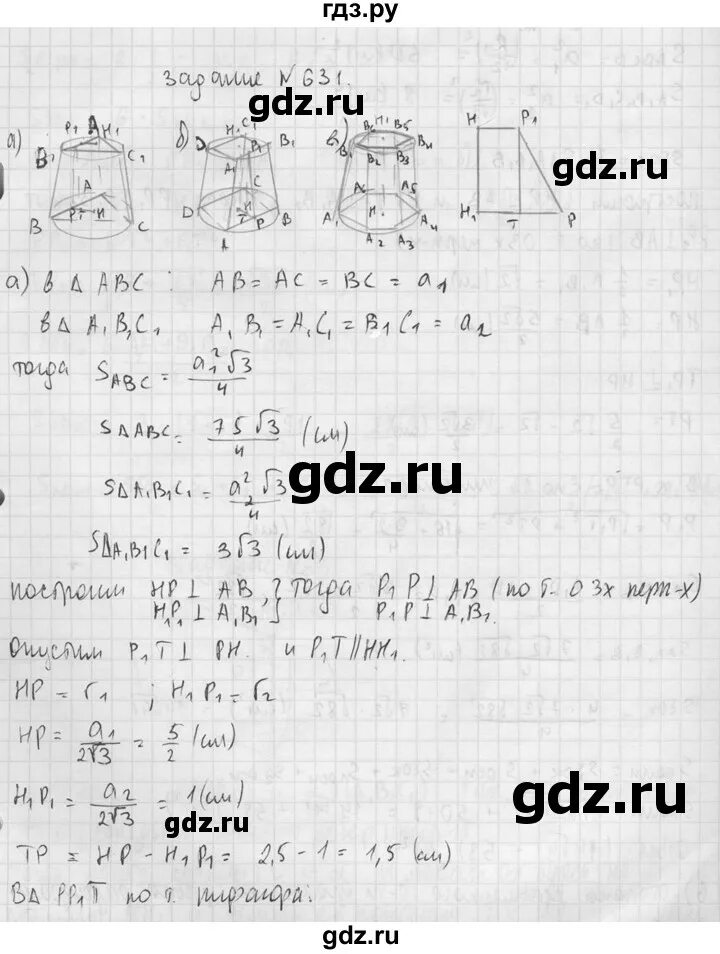 гдз.ру
задание № 631.
gdz.ru
а) б) в)
P₁ A H₁ B₁ C₁ A B P H C
H₁ C₁ B₁ B₁ A₁ C D T P B A
H₁ B₅ B₄ B₂ B₃ A₅ A₁ H A₄ A₂ A₃
H P₁ H₁ T P
gdz.ru
а) в Δ ABC : AB = AC = BC = a₁
в Δ A₁B₁C₁ A₁B₁ = A₁C₁ = B₁C₁ = a₂
тогда S_ABC = a₁²√3/4
SΔABC = 75√3/4 (см)
gdz.ru
SΔA₁B₁C₁ = a₂²√3/4
SΔA₁B₁C₁ = 3√3 (см)
gdz.ru
построим HP ⊥ AB, } тогда P₁P ⊥ AB (по т. о 3х перп-х)
H₁P₁ ⊥ A₁B₁ } P₁P ⊥ A₁B₁.
Опустим P₁T ⊥ PH. и P₁T ∥ HH₁.
HP = r₁ ; H₁P₁ = r₂
HP = a₁/2√3 = 5/2 (см)
gdz.ru
H₁P₁ = a₂/2√3 = 1 (см)
gdz.ru
TP = HP - H₁P₁ = 2,5 - 1 = 1,5 (см)
В Δ PP₁T по т. пифагора:
gdz.ru